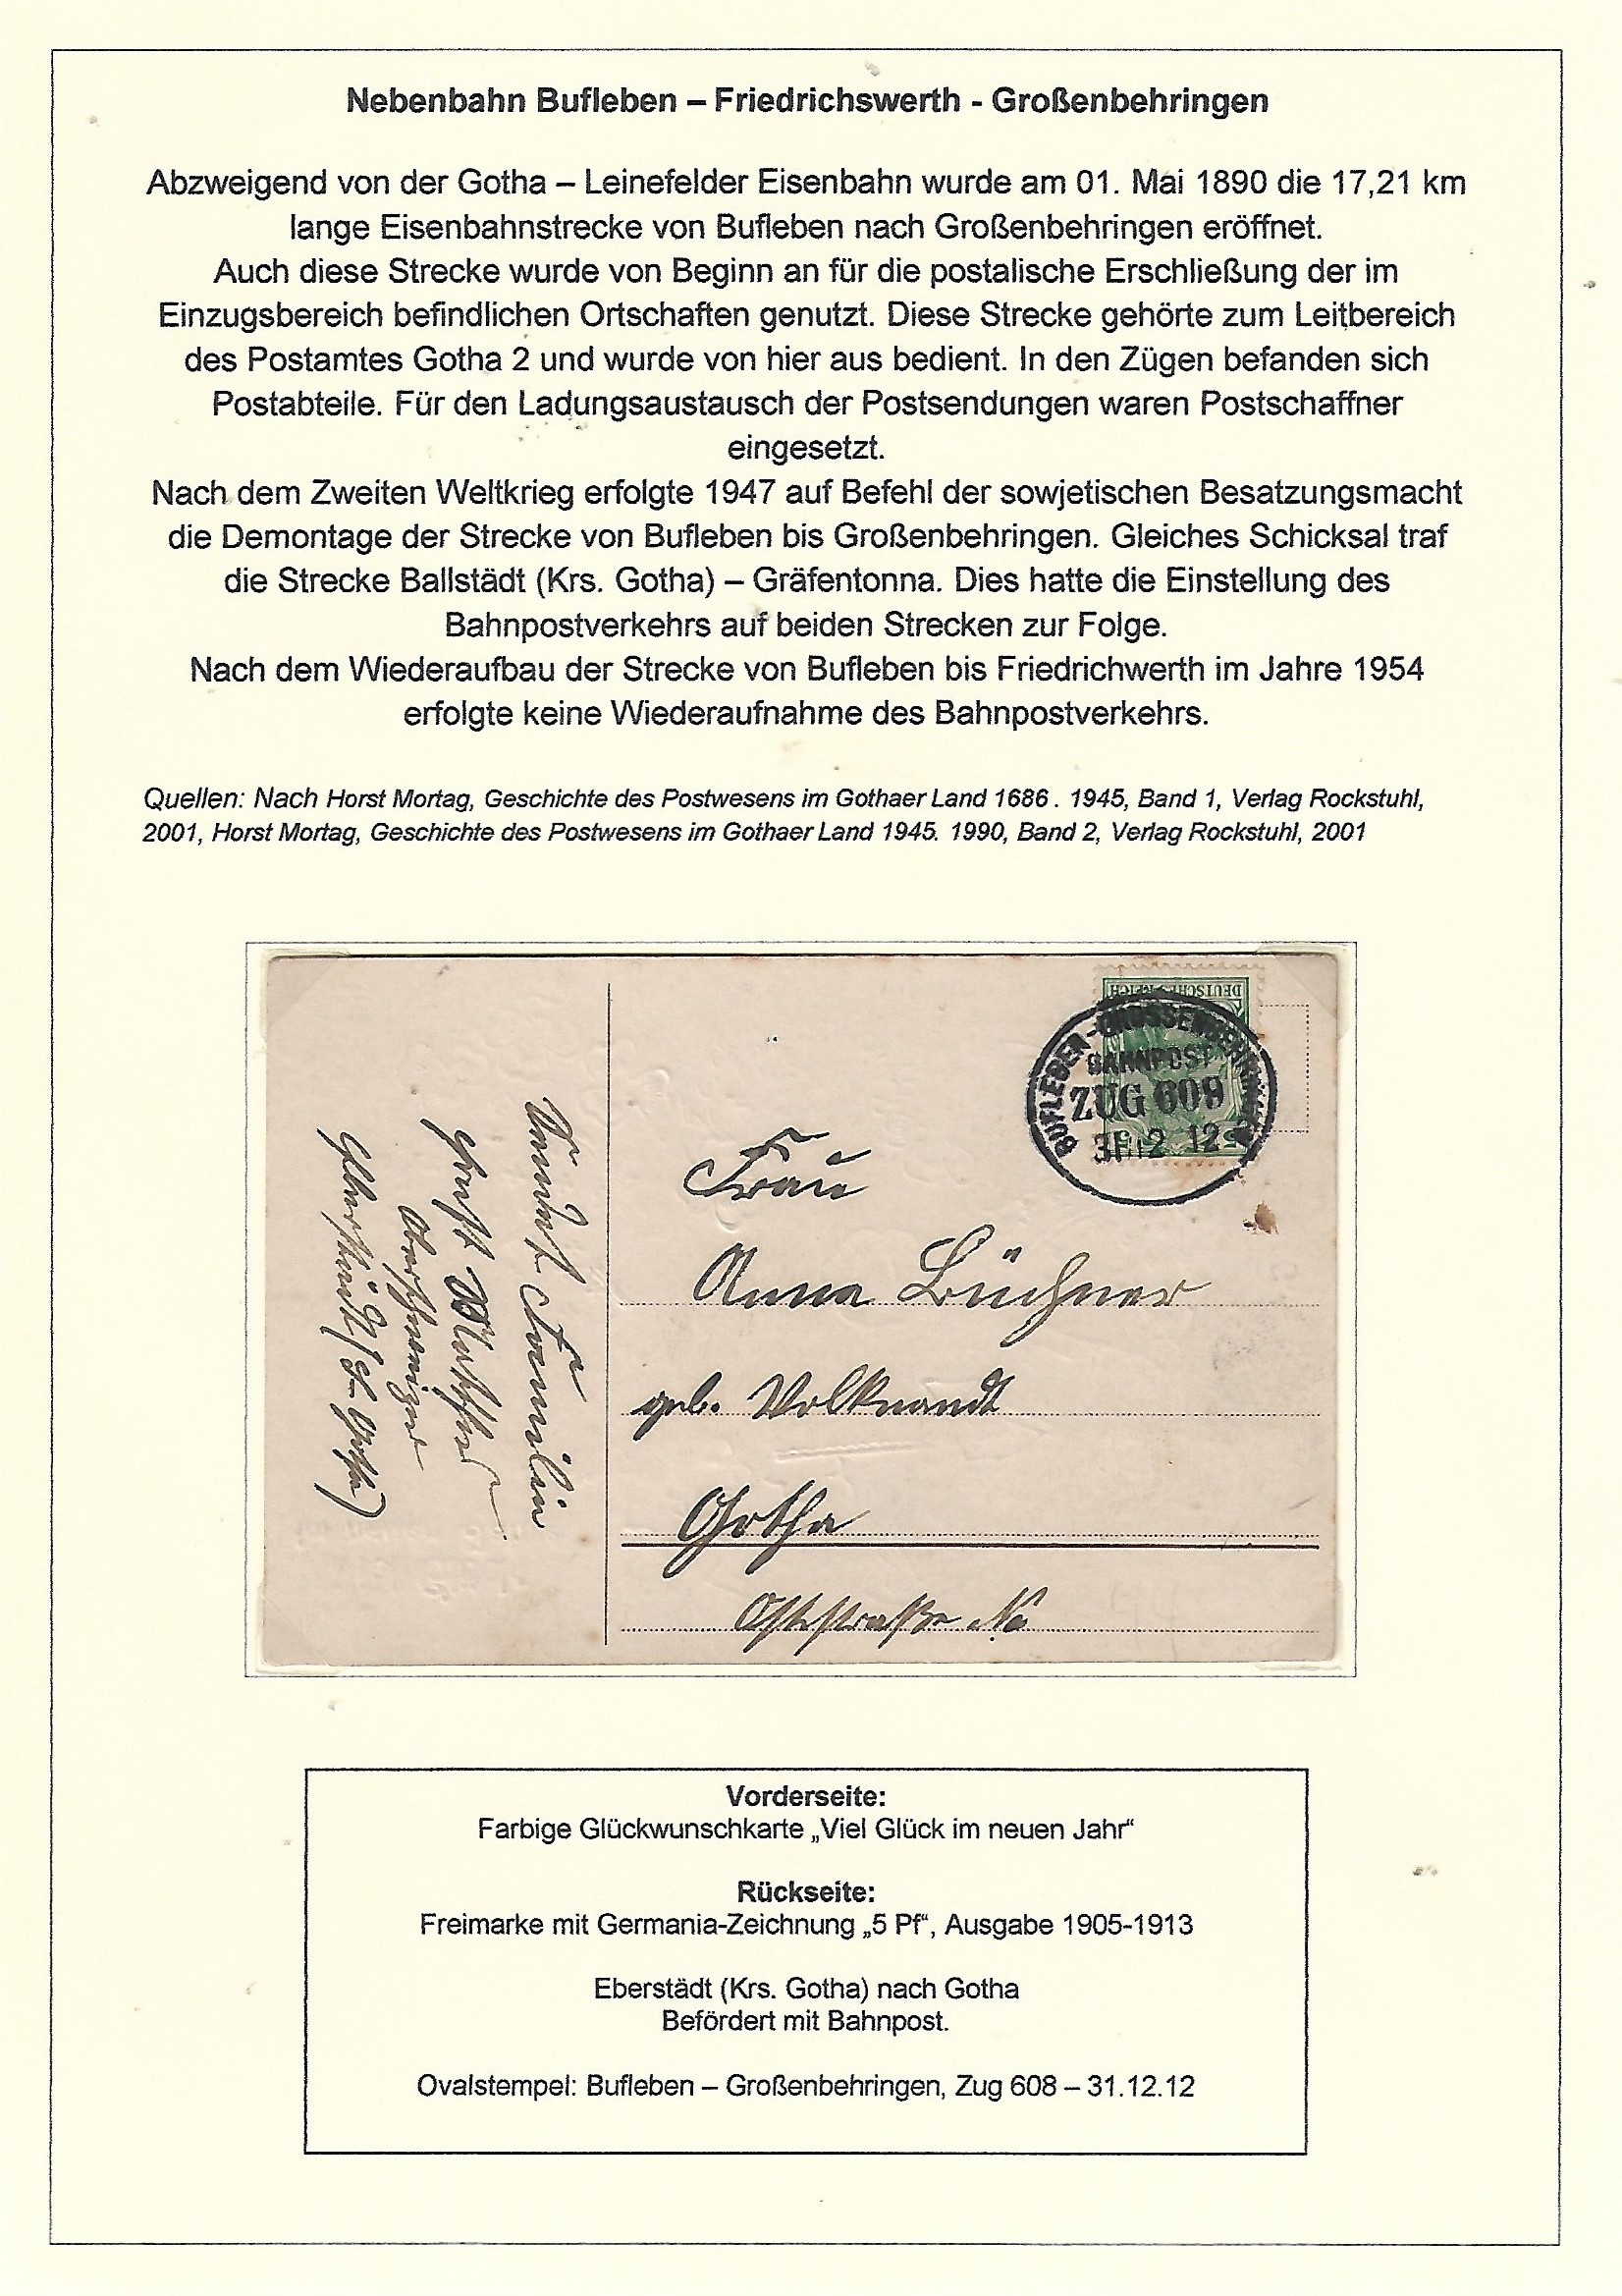 Nebenbahn Bufleben – Friedrichswerth - Großenbehringen
Abzweigend von der Gotha – Leinefelder Eisenbahn wurde am 01. Mai 1890 die 17,21 km
lange Eisenbahnstrecke von Bufleben nach Großenbehringen eröffnet.
Auch diese Strecke wurde von Beginn an für die postalische Erschließung der im
Einzugsbereich befindlichen Ortschaften genutzt. Diese Strecke gehörte zum Leitbereich
des Postamtes Gotha 2 und wurde von hier aus bedient. In den Zügen befanden sich
Postabteile. Für den Ladungsaustausch der Postsendungen waren Postschaffner
eingesetzt.
Nach dem Zweiten Weltkrieg erfolgte 1947 auf Befehl der sowjetischen Besatzungsmacht
die Demontage der Strecke von Bufleben bis Großenbehringen. Gleiches Schicksal traf
die Strecke Ballstädt (Krs. Gotha) – Gräfentonna. Dies hatte die Einstellung des
Bahnpostverkehrs auf beiden Strecken zur Folge.
Nach dem Wiederaufbau der Strecke von Bufleben bis Friedrichwerth im Jahre 1954
erfolgte keine Wiederaufnahme des Bahnpostverkehrs.
Quellen: Nach Horst Mortag, Geschichte des Postwesens im Gothaer Land 1686 . 1945, Band 1, Verlag Rockstuhl,
2001, Horst Mortag, Geschichte des Postwesens im Gothaer Land 1945. 1990, Band 2, Verlag Rockstuhl, 2001
DEUTSCHES REICH
BUFLEBEN - GROSSENBEHRINGEN
BAHNPOST
ZUG 609
31 12 12
Frau
Anna Büchner
geb. Volknandt
Gotha
Oststraße No
Familie
Vorderseite:
Farbige Glückwunschkarte „Viel Glück im neuen Jahr“
Rückseite:
Freimarke mit Germania-Zeichnung „5 Pf“, Ausgabe 1905-1913
Eberstädt (Krs. Gotha) nach Gotha
Befördert mit Bahnpost.
Ovalstempel: Bufleben – Großenbehringen, Zug 608 – 31.12.12